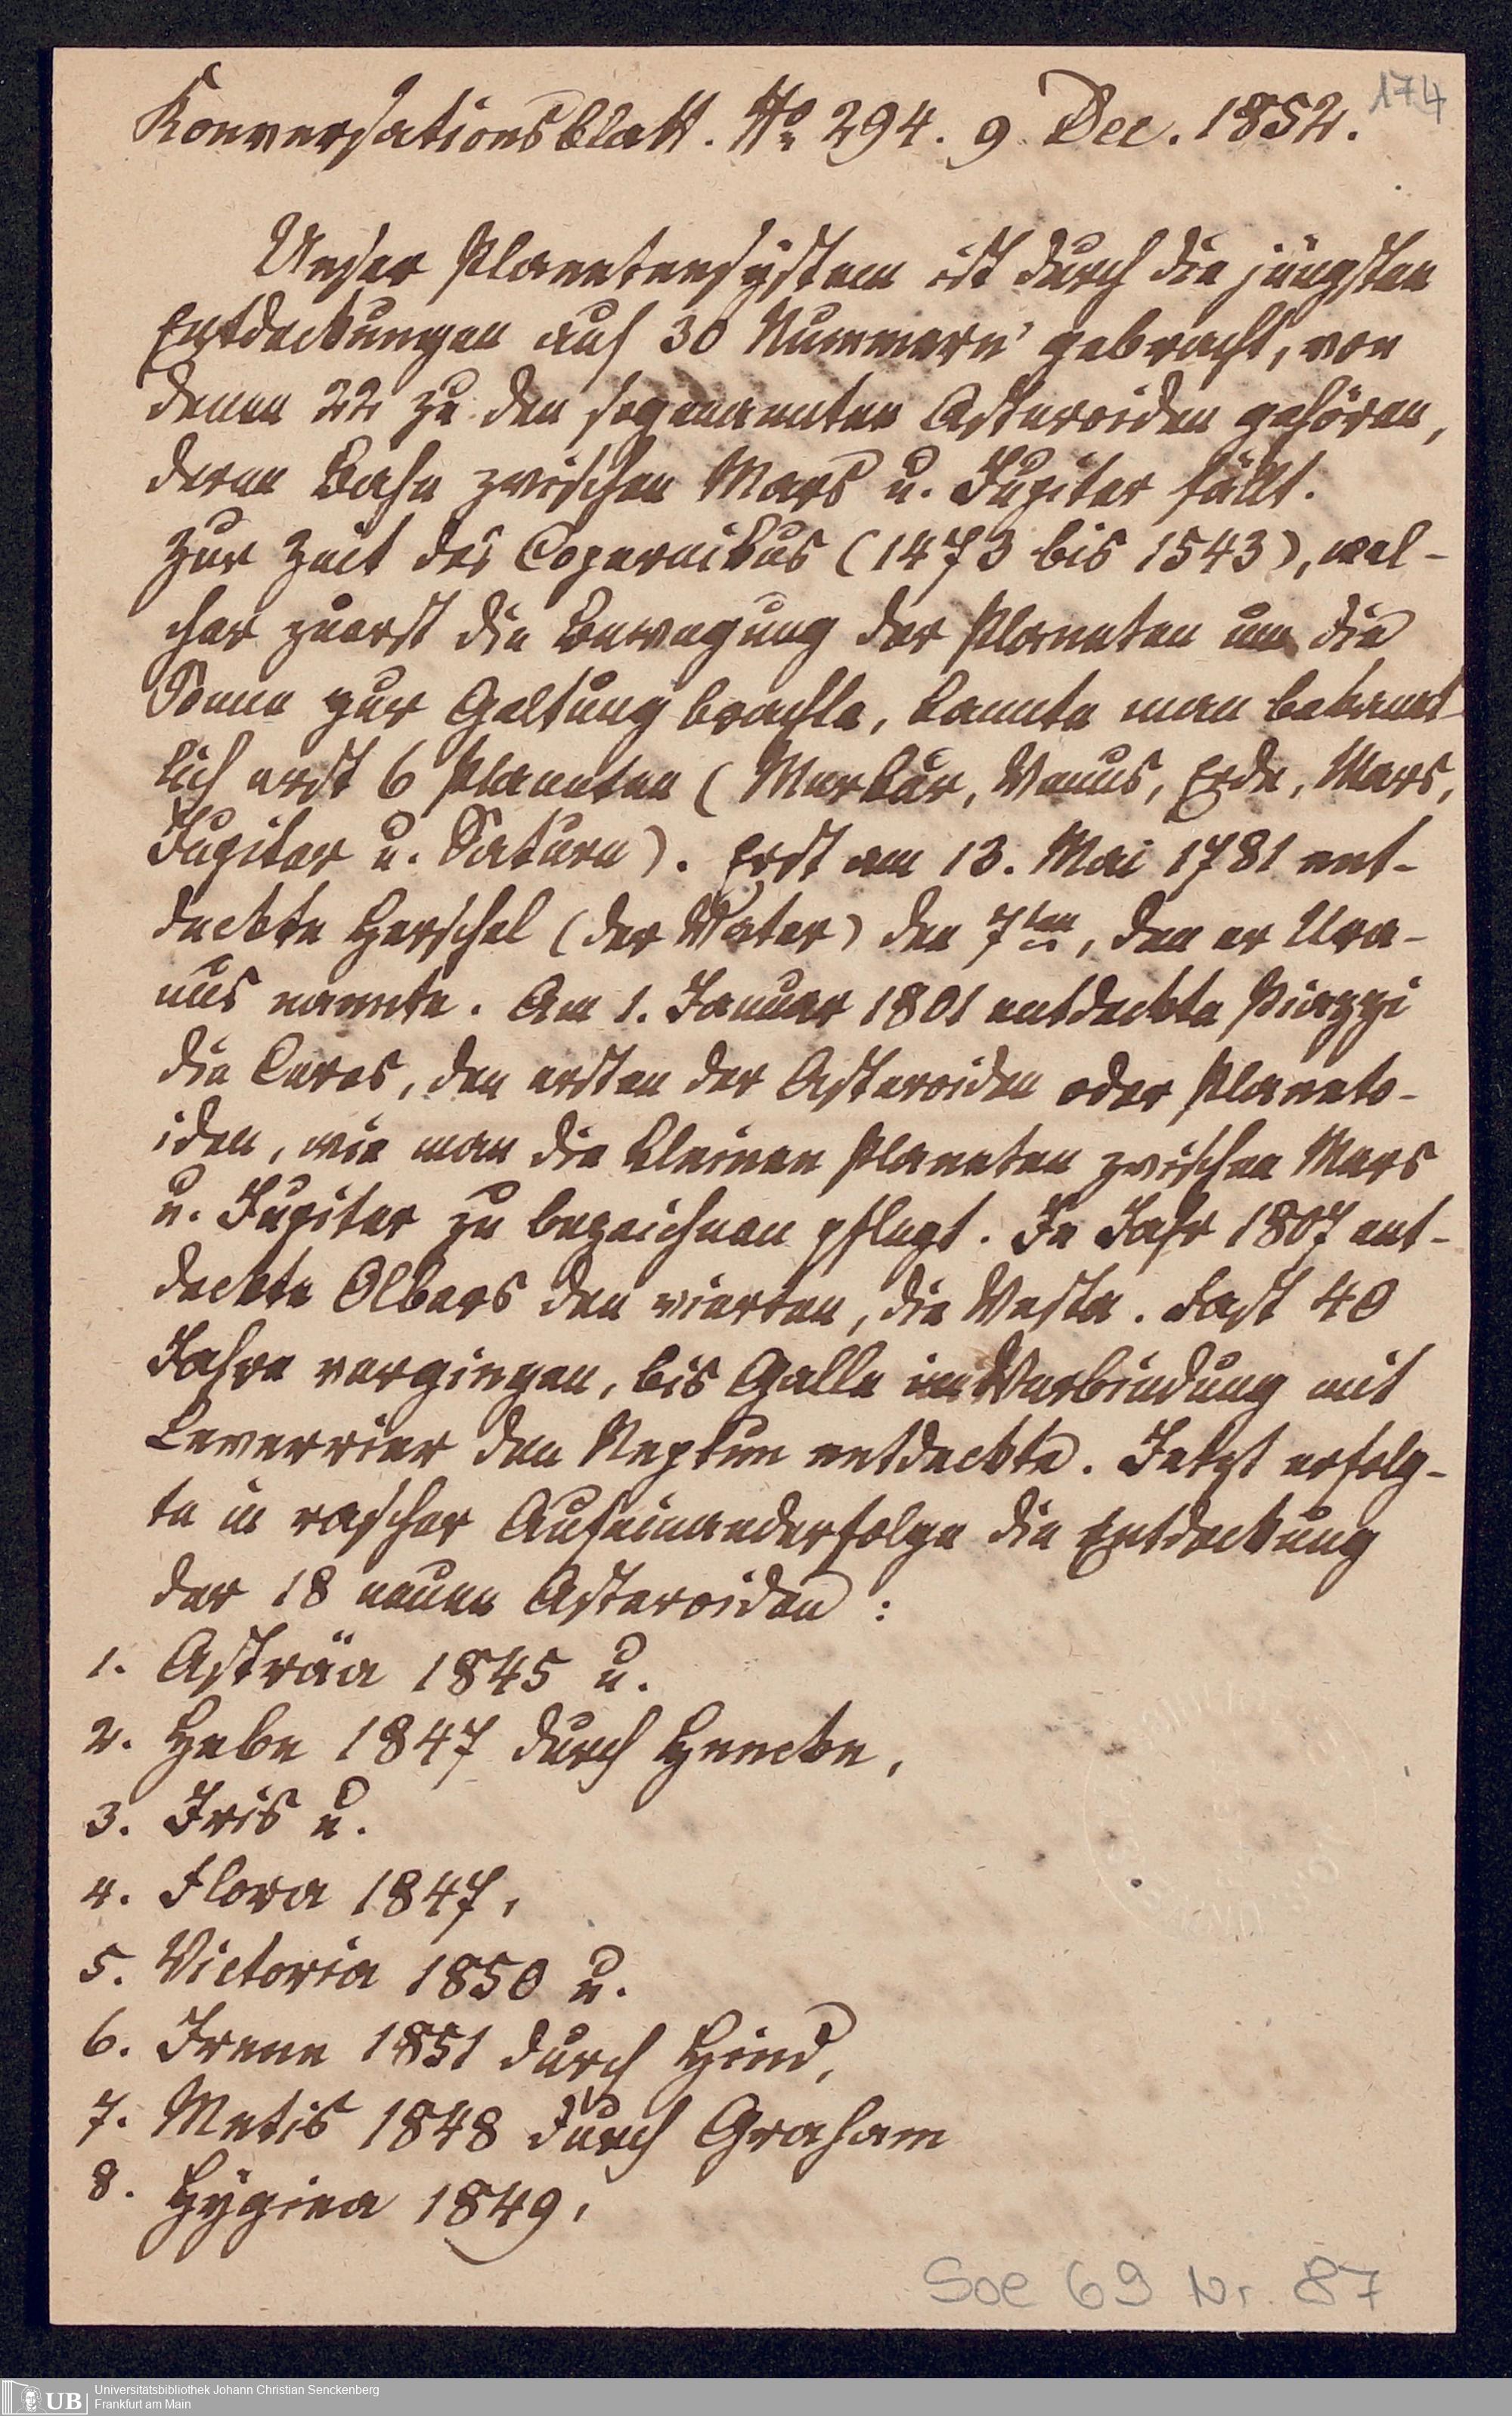 174
Konversationsblatt. No. 294. 9. Dec. 1852.
Unser Planetensystem ist durch die jüngsten
Entdeckungen auf 30 Nummern gebracht, von
denen 22 zu den sogenannten Asteroiden gehören,
deren Bahn zwischen Mars u. Jupiter fällt.
Zur Zeit des Copernikus (1473 bis 1543), wel-
cher zuerst die Bewegung der Planeten um die
Sonne zur Geltung brachte, kannte man bekannt-
lich erst 6 Planeten (Merkur, Venus, Erde, Mars,
Jupiter u. Saturn). Erst am 13. Mai 1781 ent-
deckte Herschel (der Vater) den 7ten, den er Ura-
nus nannte. Am 1. Januar 1801 entdeckte Piazzi
die Ceres, den ersten der Asteroiden oder Planeto-
iden, wie man die kleinen Planeten zwischen Mars
u. Jupiter zu bezeichnen pflegt. In Jahr 1807 ent-
deckte Olbers den vierten, die Vesta. Fast 40
Jahre vergingen, bis Galle in Verbindung mit
Leverrier den Neptun entdeckte. Jetzt erfolg-
te in rascher Aufeinanderfolge die Entdeckung
der 18 neuen Asteroiden:
1. Asträa 1845 u.
2. Hebe 1847 durch Hencke,
3. Iris u.
4. Flora 1847,
5. Victoria 1850 u.
6. Irene 1851 durch Hind,
7. Metis 1848 durch Graham
8. Hygiea 1849,
Soe 69 Nr. 87
UB
Universitätsbibliothek Johann Christian Senckenberg
Frankfurt am Main